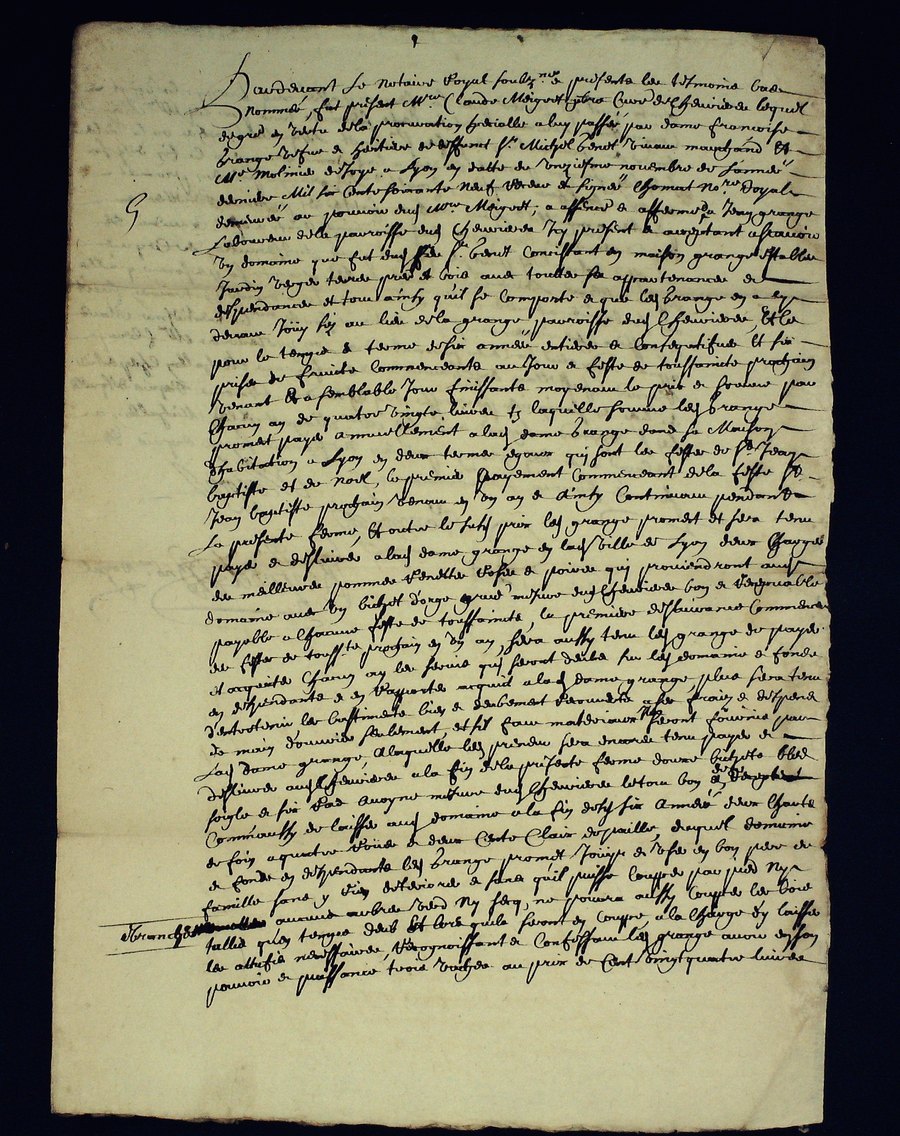 Pardevant Le Notaire Royal soubzne presente les tesmoins bas
nommés, fut present Mre Claude Meigret pbre Curé de Chevrieres lequel
de gré en vertu de la procuration specialle a luy passée par dame francoise
Grange vefve & heritiere de deffunct Sr Michel benoit vivant marchand Et
Me Molinier de soye a Lyon en datte du unziesme novembre de Lannée
derniere Mil six Cents soixante neuf receue & signée Chomat Nore Royal
au pouvoir dud Mre Meigret, a affencé & affermé a Jean grange
Laboureur de la parroisse dud Chevrieres Icy present & acceptant a scavoir
Un domaine que fut dud feu Sr benoit Consistant en maison grange Estables
Jardin verger terres prés et bois avec touttes ses appartenances &
despendances et tout ainsy qu'il se comporte & que led grange en a cy
devant Jouy sis au lieu de la grange parroisse dud Chevrieres, Et ce
pour le temps & terme de six années entieres & Consecutifves Et six
prises de fruicts Commenceants au Jour & feste de toussaincts prochain
venant Et a semblable Jour finissants moyenant le prix & somme par
Chacun an de quatre vingts livres tz laquelle somme led Grange
promet payer annuellement a lad dame Grange dans sa Maison
d'habitation a Lyon en deux termes egaux qui sont les festes de St Jean
baptiste et de noel, le premier payement Commenceant de la feste St
Jean baptiste prochain venant en un an & Ainsy Continuant pendant
La presente ferme, Et outre le susd prix led grange promet et sera tenu
payer & deslivrer a lad dame grange en lad ville de Lyon deux Charges
des meilleures pommes Renettes & poires qui proviendront aud
domaine avec un bichet d'orge mesure dud Chevrieres bon & Recepvable
payable a Chacune feste de toussaincts, la premiere deslivrance Commenceant
de feste de toussts prochain en un an, sera aussy tenu led grange de payer
et acquitter Chacun an les servis qui seront deubs sur led domaine & fonds
en despendants & en Rapporter acquit a lad dame grange plus sera tenu
d'entretenir les bastiments bien & deubement Couverts a ses fraix & despens
de main d'ouvrier seulement, et s'il faut materiaux seront fournis par
Lad dame grange, A laquelle led preneur sera encores tenu payer &
deslivrer aud Chevrieres a la fin de la presente ferme douze bichets bled
soigle & six Ras Avoyne mesure dud Chevrieres le tout bon &
Comm'aussy de laisser aud domaine a la fin desd six Années deux Chars
de foin a quatre Roues & deux Cents Clais de paille, duquel domaine
& fonds en despendants led Grange promet Jouyr & User en bon pere de
famille sans y rien deteriorer & sans qu'il puisse Couper par pied Ny
esbrancher aucuns arbres verd Ny secq, ne pourra aussy Couper les bois
taillis qu'en temps deub Et lors qu'ils seront en Couppe a la Charge d'y laisser
les necessaires, Recognoissant & Confessant led grange avoir en son
pouvoir & puissance trois vaches au prix de Cent vingt quatre livres